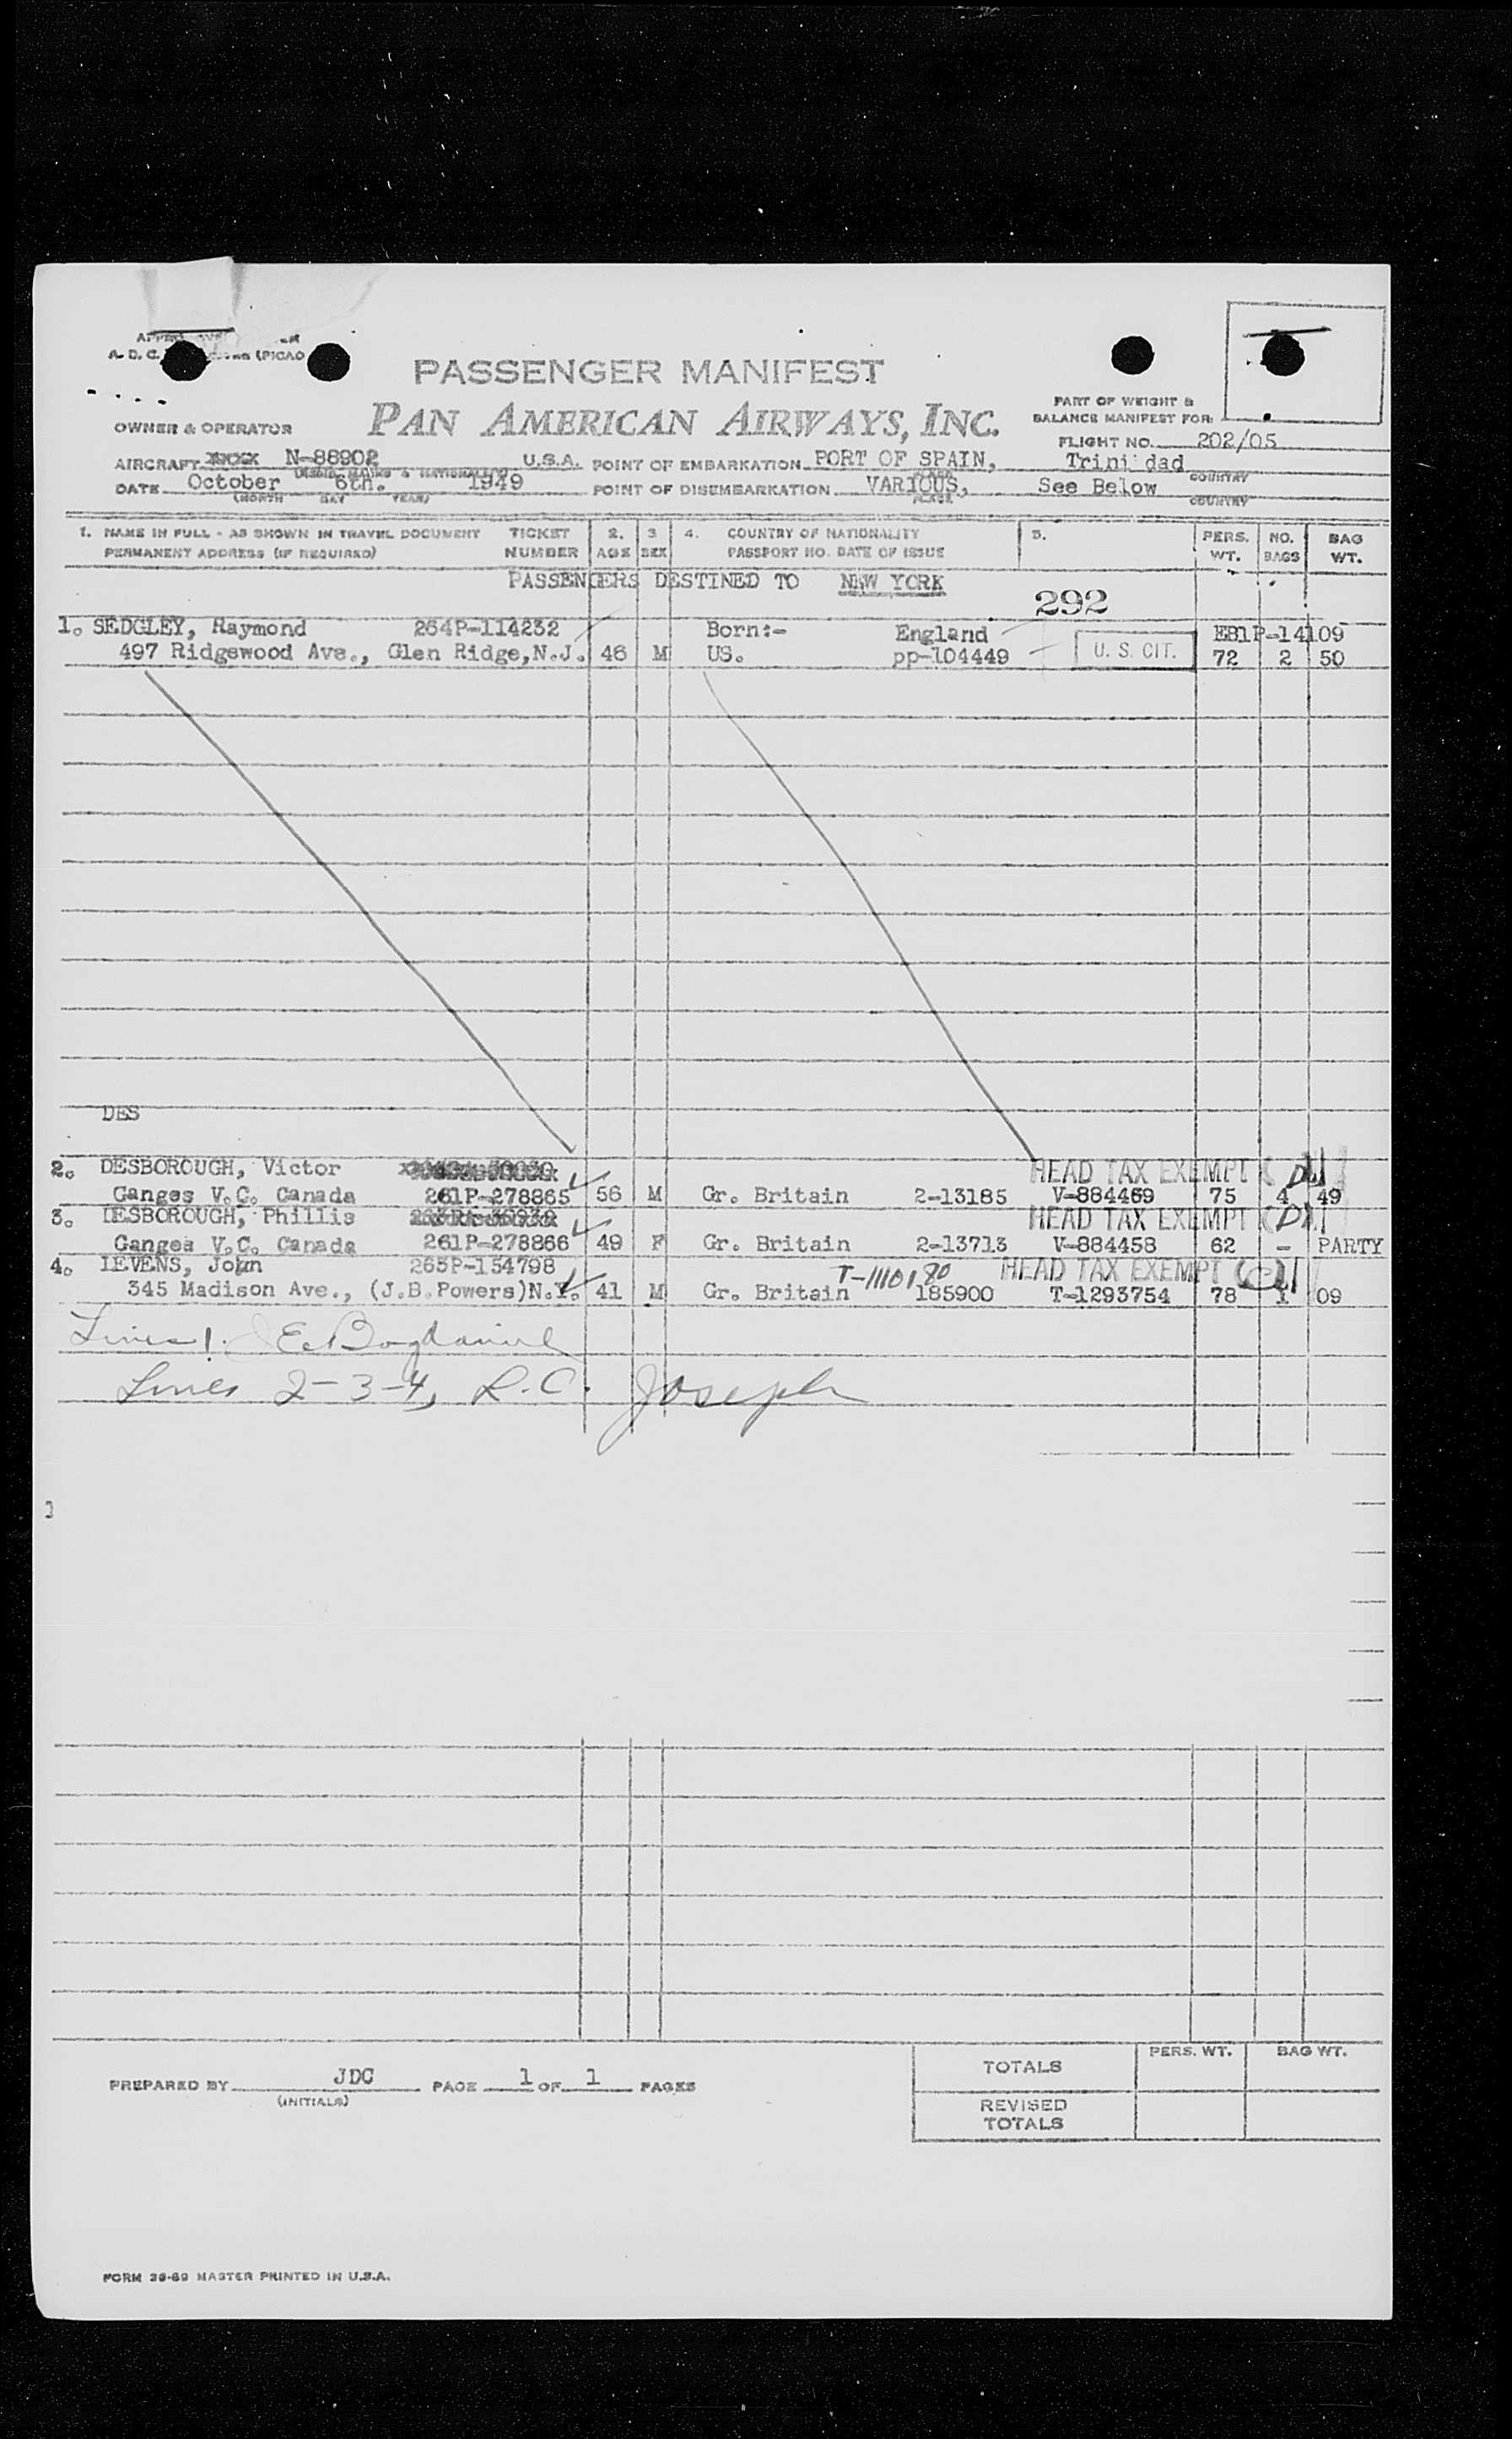 A. D. C. (PICAO
PASSENGER MANIFEST
PAN AMERICAN AIRWAYS, INC.
OWNER & OPERATOR
PART OF WEIGHT &
BALANCE MANIFEST FOR:
FLIGHT NO. 202/05
AIRCRAFT N-88902 U.S.A. POINT OF EMBARKATION PORT OF SPAIN, Trinidad
DATE October 6th. 1949 POINT OF DISEMBARKATION VARIOUS, See Below
(MONTH DAY YEAR) PLACE COUNTRY
1. NAME IN FULL - AS SHOWN IN TRAVEL DOCUMENT TICKET 2. 3 4. COUNTRY OF NATIONALITY 5. PERS. NO. BAG
PERMANENT ADDRESS (IF REQUIRED) NUMBER AGE SEX PASSPORT NO. DATE OF ISSUE WT. BAGS WT.
PASSENGERS DESTINED TO NEW YORK
292
1. SEDGLEY, Raymond 264P-114232 Born:- England EB1P-14109
497 Ridgewood Ave., Glen Ridge,N.J. 46 M US. pp-104449 U. S. CIT. 72 2 50
DES
2. DESBOROUGH, Victor HEAD TAX EXEMPT (D)
Ganges V.C. Canada 261P-278865 56 M Gr. Britain 2-13185 V-884469 75 4 49
3. DESBOROUGH, Phillis HEAD TAX EXEMPT (D)
Ganges V.C. Canada 261P-278866 49 F Gr. Britain 2-13713 V-884458 62 - PARTY
4. IEVENS, John 265P-154798 T-1110180 HEAD TAX EXEMPT (C)
345 Madison Ave., (J.B.Powers)N.Y. 41 M Gr. Britain 185900 T-1293754 78 1 09
Lines 2-3-4, R.C. Joseph
PREPARED BY JDC PAGE 1 OF 1 PAGES
(INITIALS)
PERS. WT. BAG WT.
TOTALS
REVISED
TOTALS
FORM 36-69 MASTER PRINTED IN U.S.A.